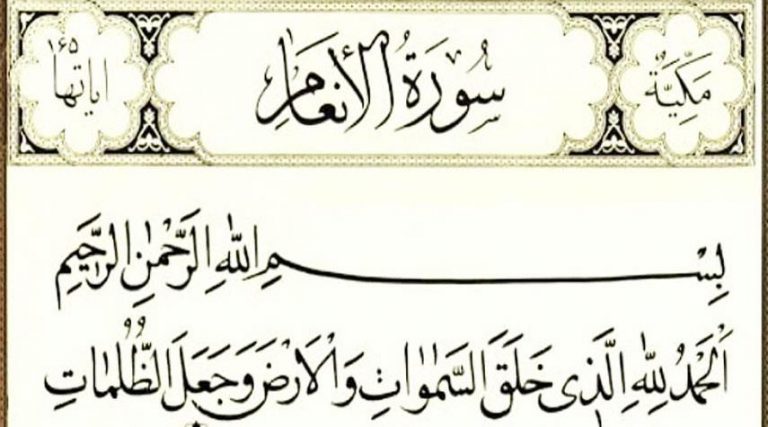 مَكِّيَّةٌ
سُورَةُ الْأَنعَامِ
اياتها ١٦٥
بِسْمِ اللّٰهِ الرَّحْمٰنِ الرَّحِيمِ
اَلْحَمْدُ لِلّٰهِ الَّذِى خَلَقَ السَّمٰوَاتِ وَالْاَرْضَ وَجَعَلَ الظُّلُمَاتِ